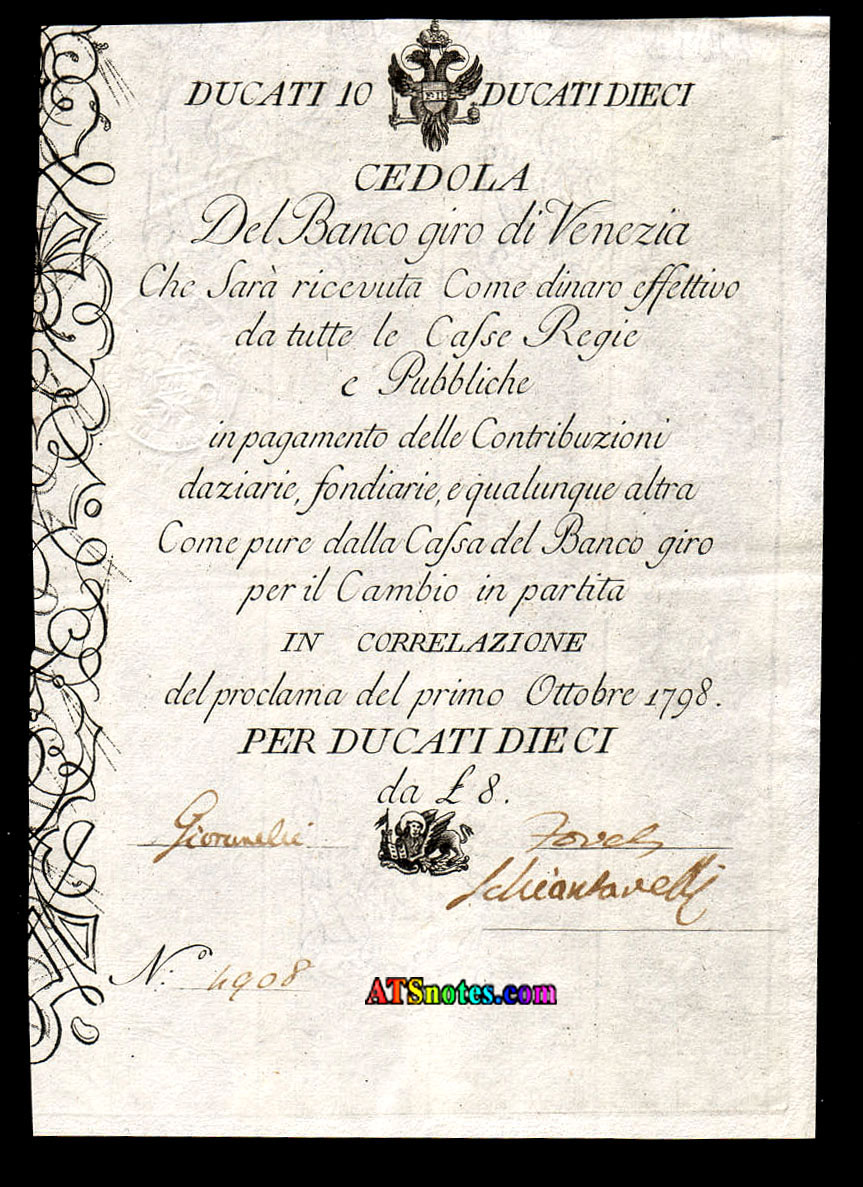 DUCATI 10 DUCATI DIECI
CEDOLA
Del Banco giro di Venezia
Che Sarà ricevuta Come dinaro effettivo
da tutte le Caſse Regie
e Pubbliche
in pagamento delle Contribuzioni
daziarie, fondiarie, e qualunque altra
Come pure dalla Caſsa del Banco giro
per il Cambio in partita
IN CORRELAZIONE
del proclama del primo Ottobre 1798.
PER DUCATI DIECI
da £ 8.
N:º 4908
ATSnotes.com